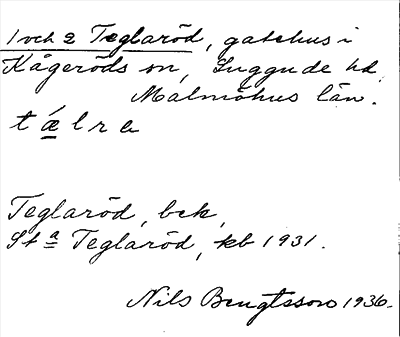 1 och 2 Teglaröd, gatehus i
Kågeröds sn, Luggude hd
Malmöhus län.
tǽlra
Teglaröd, bek,
St a Teglaröd, kb 1931.
Nils Bengtsson 1936.